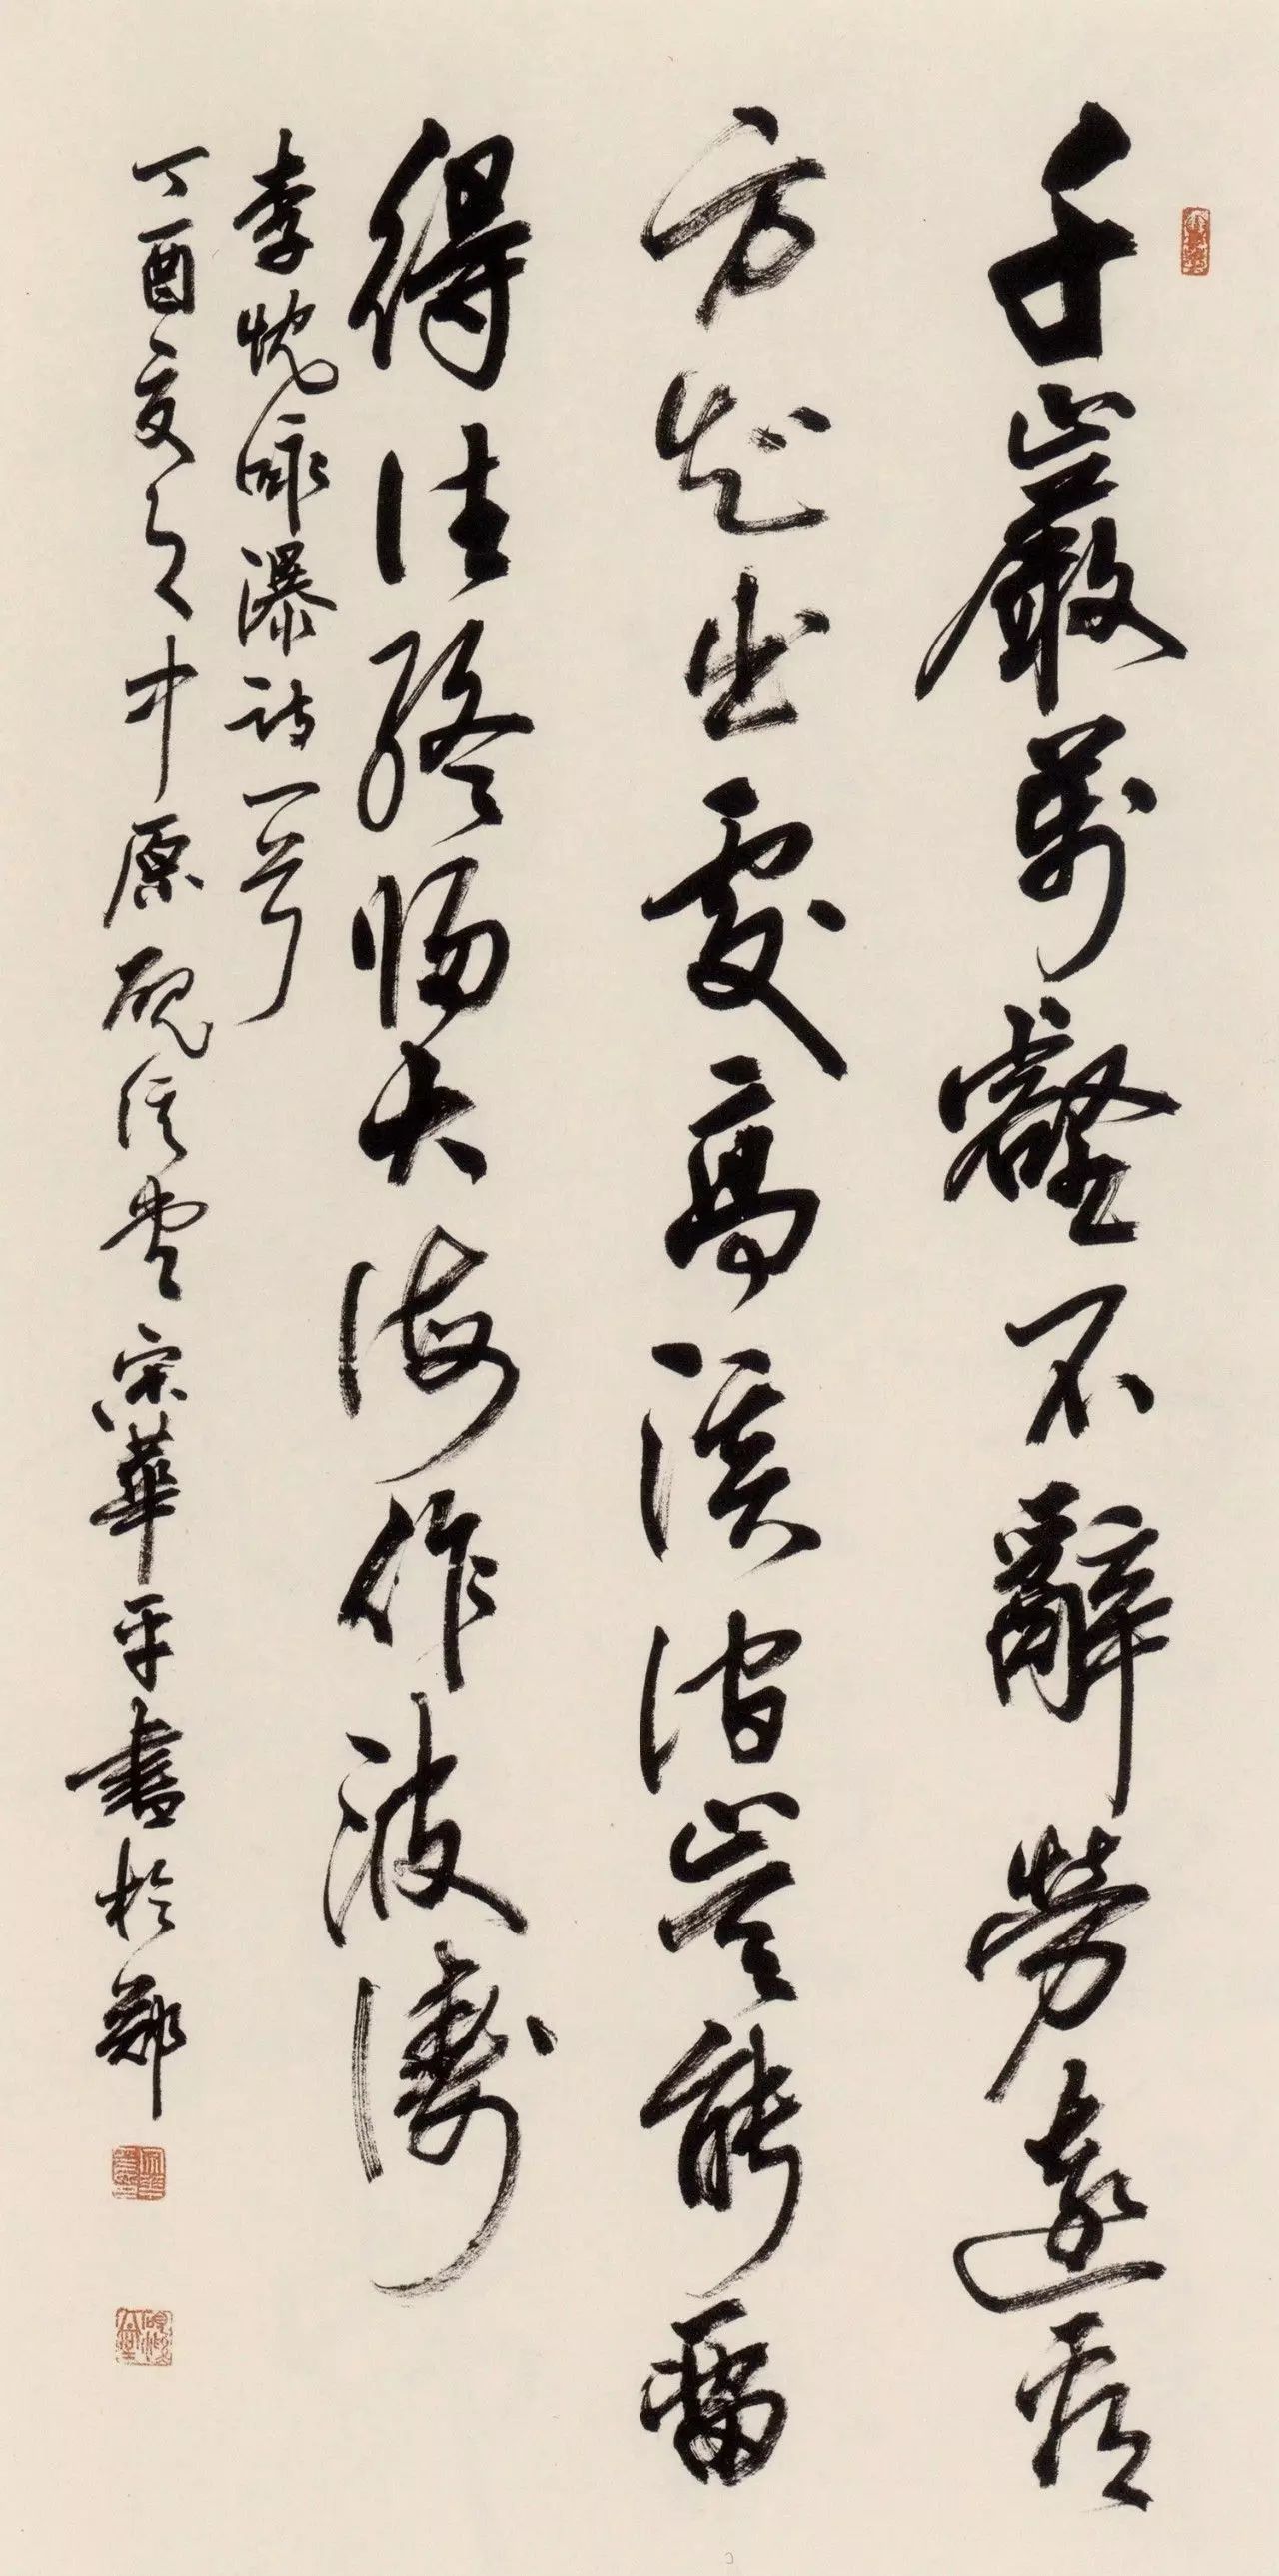 千巖萬壑不辭勞遠看
方知出處高溪澗豈能留
得住終歸大海作波濤
李忱詠瀑詩一首
丁酉夏之中原硯清堂宋華平書於鄭